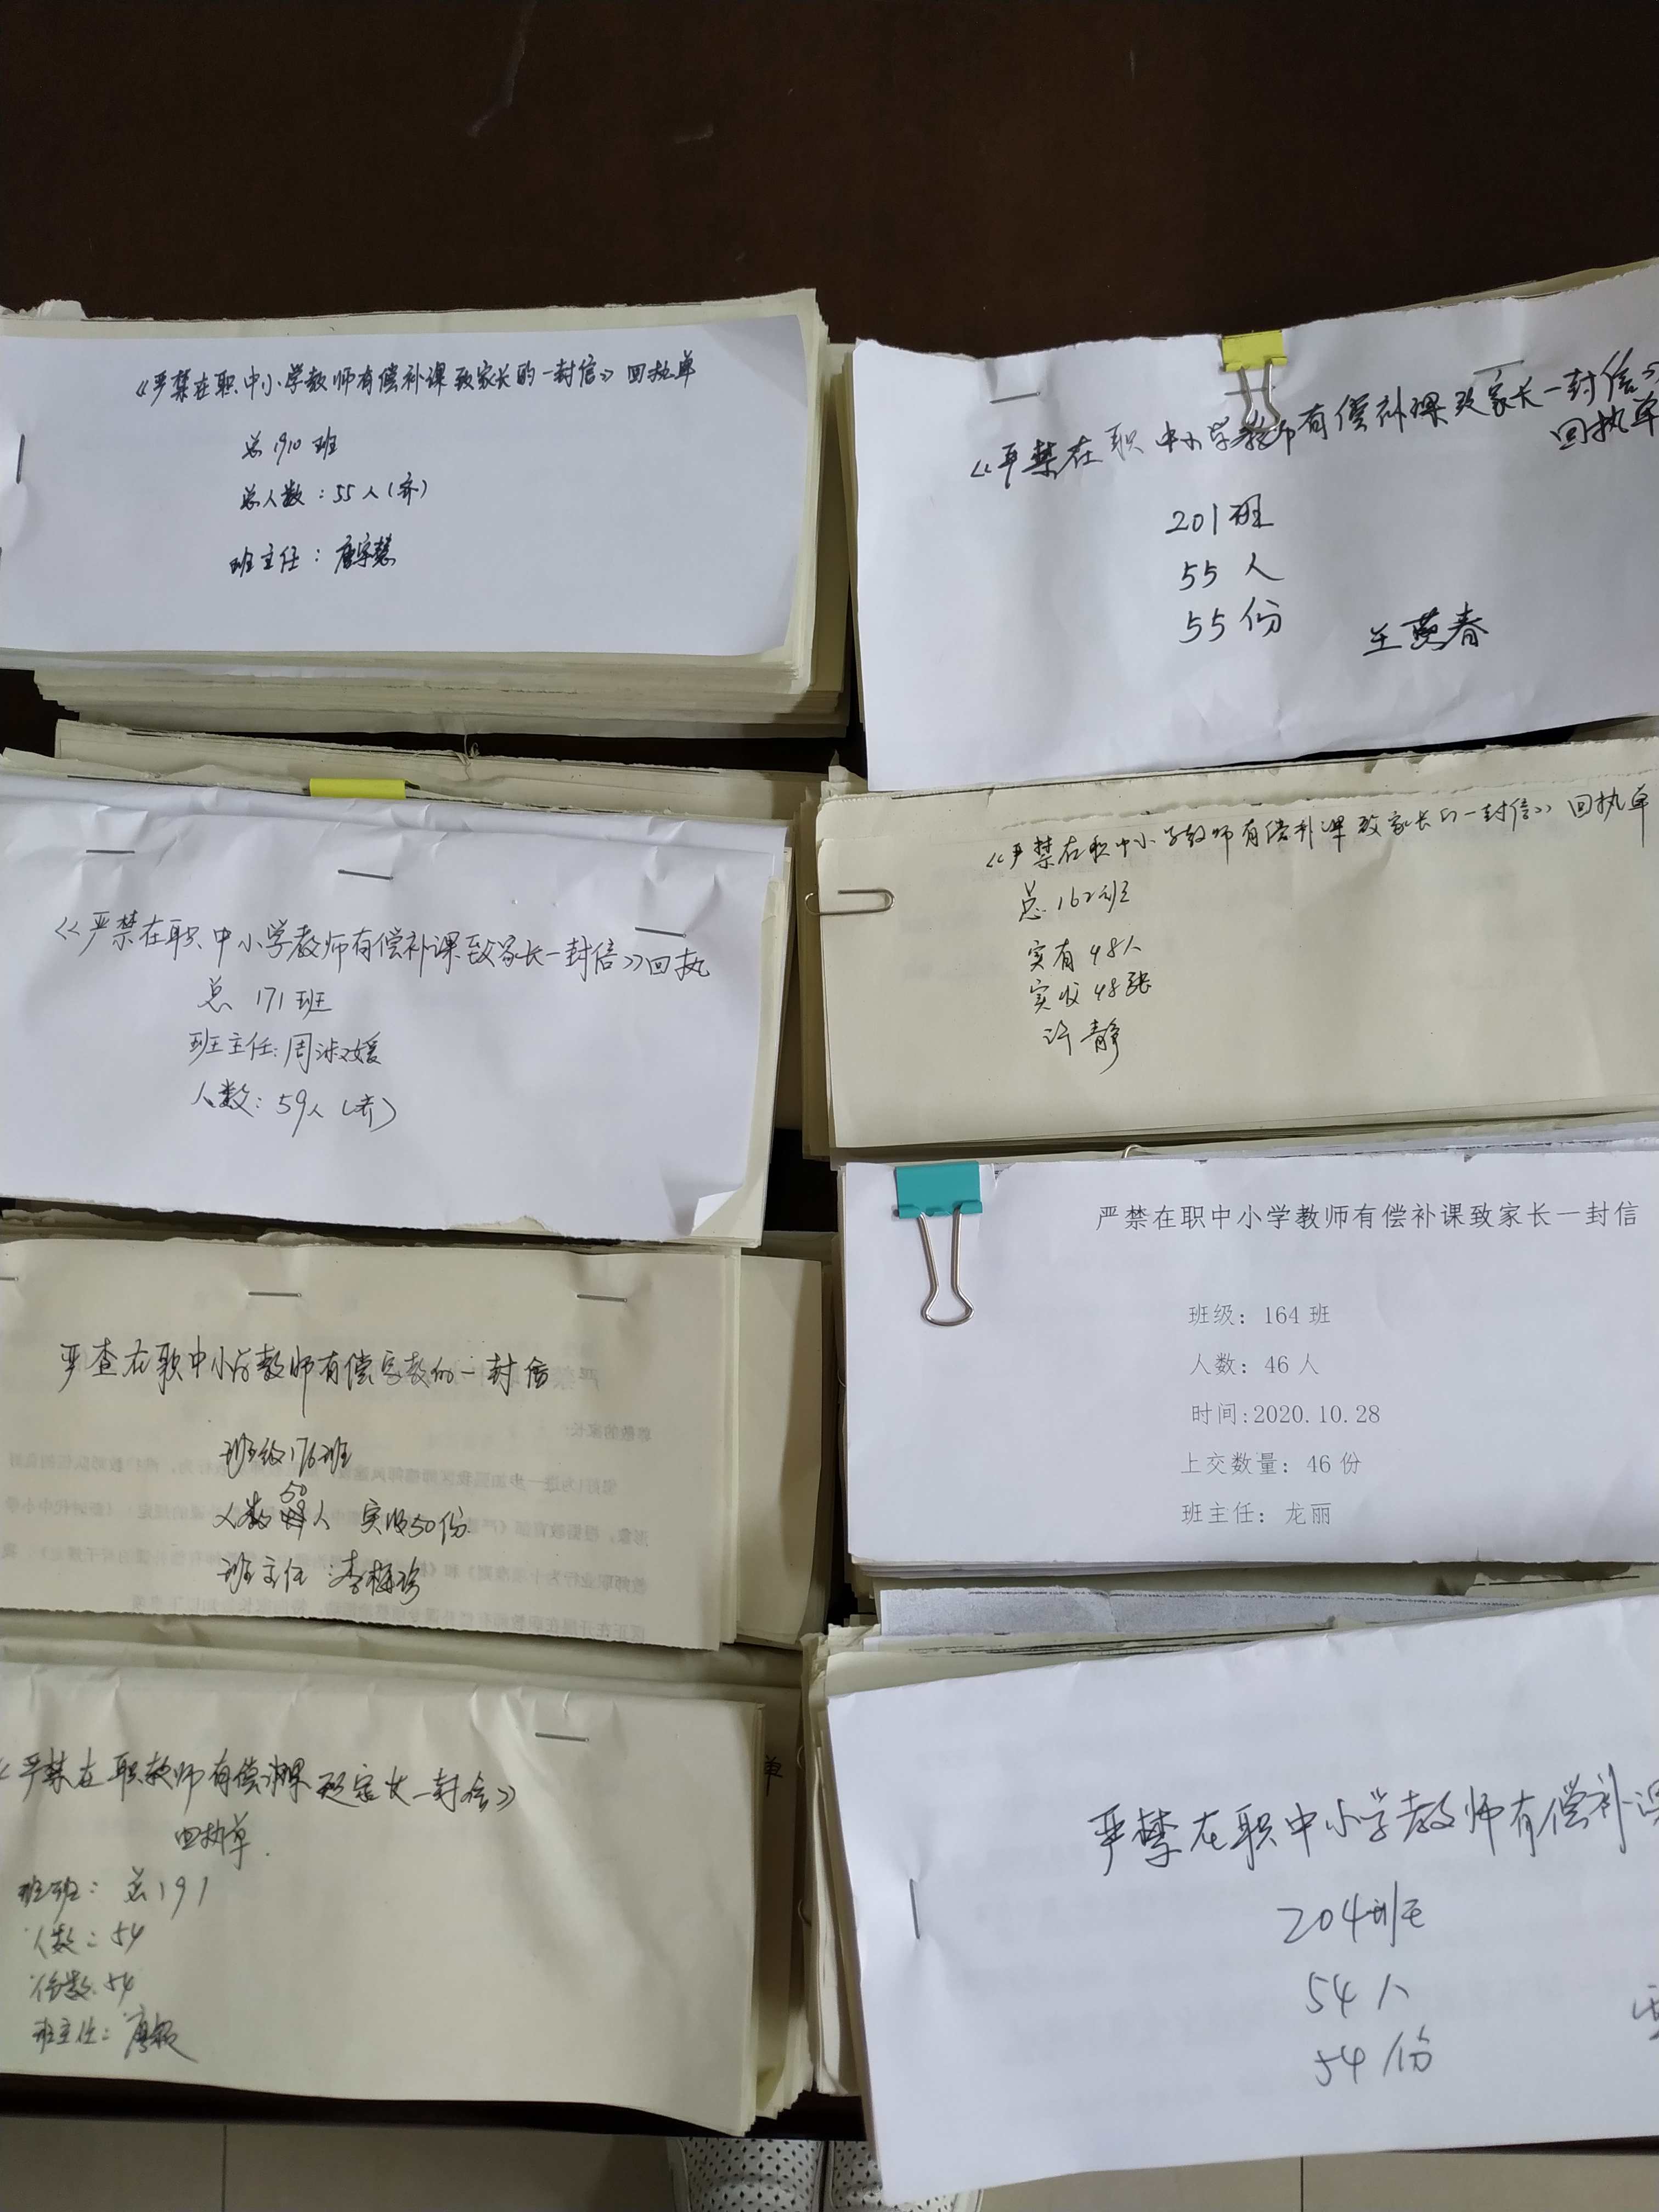 《严禁在职中小学教师有偿补课致家长的一封信》回执单
总190班
总人数：55人(齐)
班主任：唐宇慧
《严禁在职中小学教师有偿补课致家长一封信》
回执单
201班
55人
55份
王萸春
《严禁在职中小学教师有偿补课致家长一封信》回执
总 171班
班主任：周淑媛
人数：59人(齐)
《严禁在职中小学教师有偿补课致家长的一封信》回执单
总162班
实有48人
实收48张
许静
严查在职中小学教师有偿家教的一封信
班级176班
50
人数 人 实收50份
班主任：李梅珍
严禁在职中小学教师有偿补课致家长一封信
班级：164班
人数：46人
时间:2020.10.28
上交数量：46份
班主任：龙丽
《严禁在职教师有偿补课致家长一封信》
回执单
班班：总191
人数：54
份数：54
班主任：唐
单
严禁在职中小学教师有偿补课
204班
54人
54份